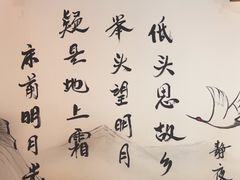 床前明月光
疑是地上霜
举头望明月
低头思故乡
静夜